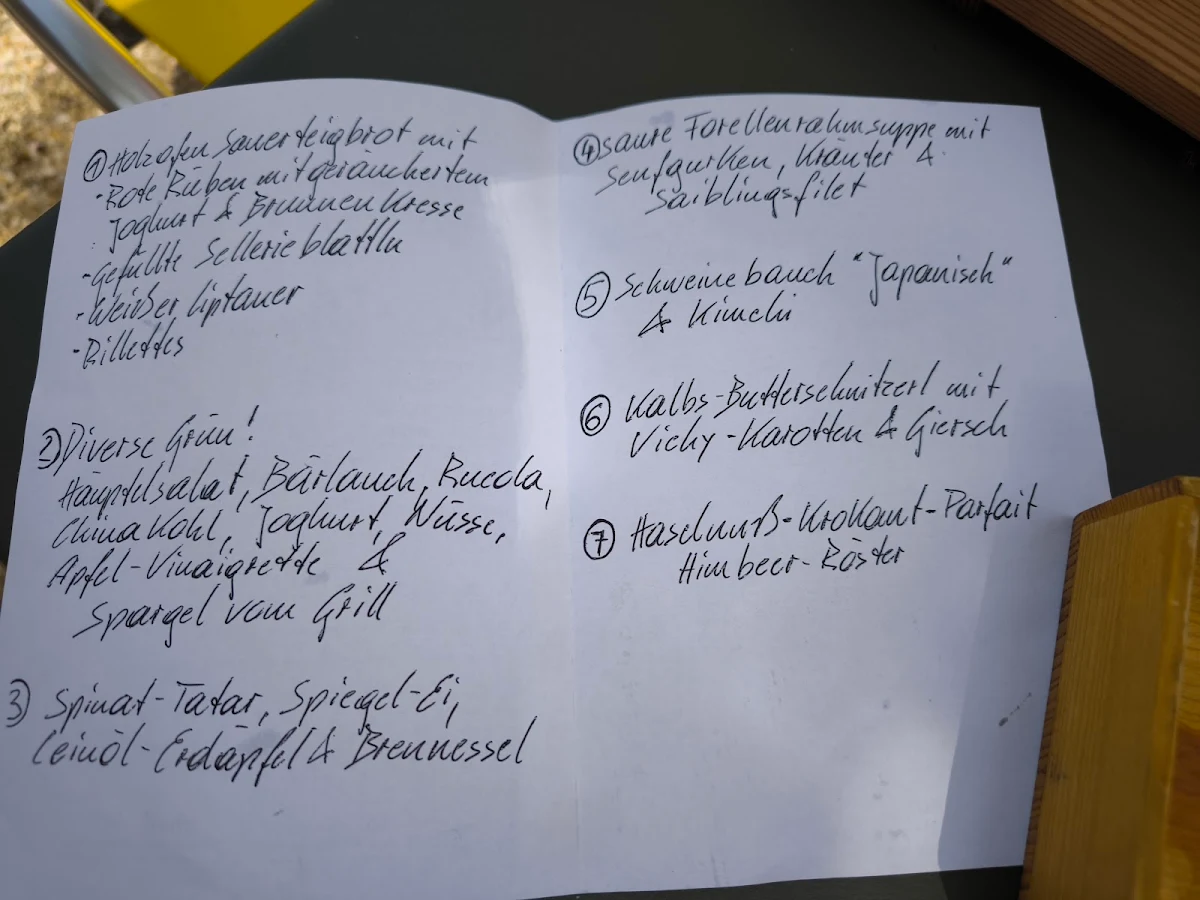 ① Holzofen Sauerteigbrot mit
· Rote Rüben mit geräuchertem
Joghurt & Brunnenkresse
- Gefüllte Sellerieblattln
· Weißer Liptauer
· Rillettes
② Diverse Grün!
Häuptelsalat, Bärlauch, Rucola,
Chinakohl, Joghurt, Nüsse,
Apfel-Vinaigrette &
Spargel vom Grill
③ Spinat-Tatar, Spiegel-Ei,
Leinöl-Erdäpfel & Brennessel
④ saure Forellenrahmsuppe mit
Senfgurken, Kräuter &
Saiblingsfilet
⑤ Schweinebauch "Japanisch"
& Kimchi
⑥ Kalbs-Butterschnitzerl mit
Vichy-Karotten & Giersch
⑦ Haselnuß-Krokant-Parfait
Himbeer-Röster